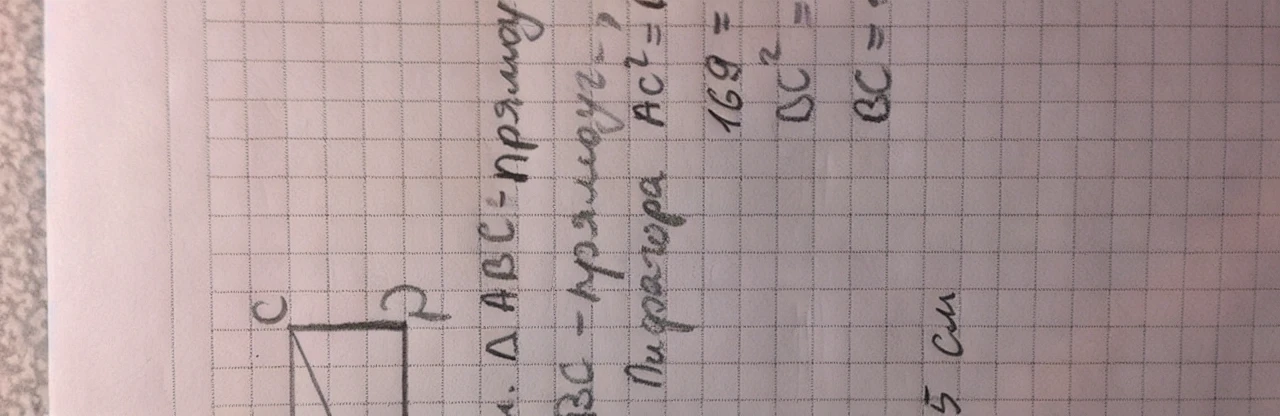 C
D
Δ ABC - прямоу
BC - прямоуг-,
Пифагора AC² = (
169 =
BC² =
BC =
5 см